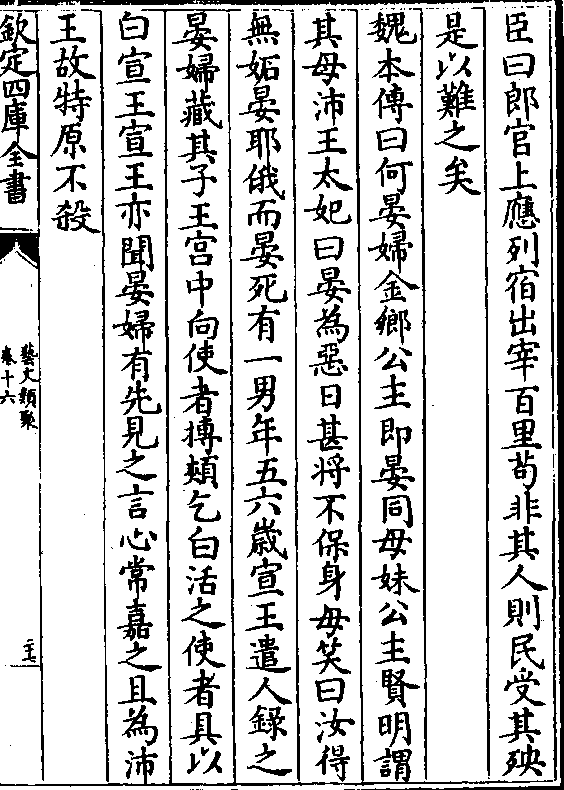 臣曰郎官上應列宿出宰百里茍非其人則民受其殃
是以難之矣
魏本傳曰何晏婦金鄉公主即晏同母妹公主賢明謂
其母沛王太妃曰晏為惡日甚將不保身母笑曰汝得
無妬晏耶俄而晏死有一男年五六歲宣王遣人録之
晏婦藏其子王宮中向使者搏頰乞白活之使者具以
白宣王宣王亦聞晏婦有先見之言心常嘉之且為沛
王故特原不殺
欽定四庫全書
藝文類聚
卷十六